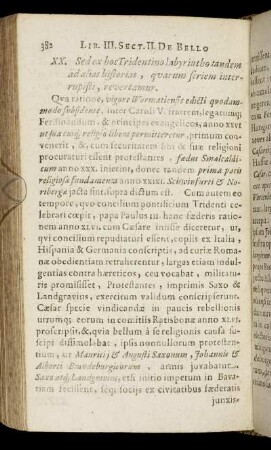 382 LIB. III. SECT. II. DE BELLO
XX. Sed ex hoc Tridentino labyrintho tandem
ad alias historias, quarum seriem inter-
rupisti, revertamur.
Qua ratione, vigore Wormatiensis edicti quodam-
modo subsidente, inter Caroli V. fratrem, legatumq;
Ferdinandum, & principes evangelicos, anno XXVI
ut sua cuiq; religio libera permitteretur, primum con-
venerit, &, cum securitatem & fœn suæ religioni
procuraturi essent protestantes, fœdus Smalcaldi-
cum anno XXX. inierint, donec tandem prima pacis
religiosæ fundamenta anno XXXII. Schweinfurti & No-
ribergæ pacta sint, supra dictum est. Cum autem eo
tempore, quo concilium pontificium Tridenti cele-
lebrari cœpit, papa Paulus III. hanc fœderis ratio-
nem anno XLVI. cum Cæsare inisse diceretur, ut,
qui concilium repudiaturi essent, copiis ex Italia,
Hispania & Germania conscriptis, ad curiæ Roma-
næ obedientiam retraherentur, largas etiam indul-
gentias contra hæreticos, ceu vocabat, militatu-
ris promisisset, Protestantes, imprimis Saxo &
Landgravius, exercitum validum conscripserunt.
Cæsar specie vindicandæ in paucis rebellionis
utrumq; eorum in comitiis Ratisbonæ anno XLVI.
proscripsit, &, quia bellum à se religionis causa su-
scipi dissimulabat, ipsis nonnullorum protestan-
tium, ut Mauritij & Augusti Saxonum, Johannis &
Alberti Brandeburgicorum, armis juvabatur.
Saxo atq; Landgravius, etsi initio imperum in Bava-
riam fecissent, seq; sociis ex civitatibus fœderatis
junxis-